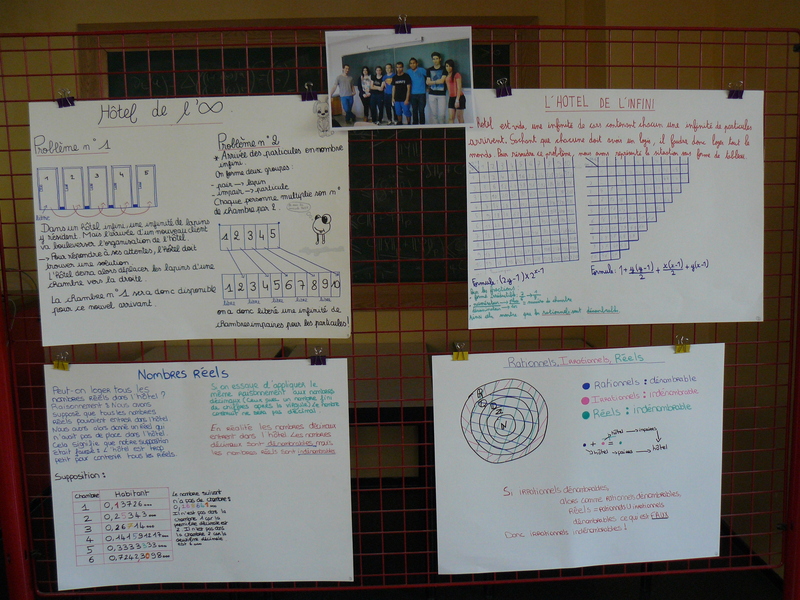 Hôtel de l'∞.
Problème n°1
1 2 3 4 5
libre
Dans un hôtel infini, une infinité de lapins
y résident. Mais l'arrivée d'un nouveau client
va bouleverser l'organisation de l'hôtel.
→ Pour répondre à ses attentes, l'hôtel doit
trouver une solution.
L'hôtel devra alors déplacer les lapins d'une
chambre vers la droite.
La chambre n°1 sera donc disponible
pour ce nouvel arrivant.
Problème n°2
* Arrivée des particules en nombre
infini
On forme deux groupes:
- pair → lapin
- impair → particule
Chaque personne multiplie son n°
de chambre par 2.
1 2 3 4 5
1 2 3 4 5 6 7 8 9 10
libre libre libre libre libre
on a donc libéré une infinité de
chambres impaires pour les particules!
L'HOTEL DE L'INFINI
L'hôtel est vide, une infinité de cars contenant chacun une infinité de particules
arrivent. Sachant que chacune doit avoir un log, il faudra donc loger tout le
monde. Pour résoudre ce problème, nous avons représenté la situation sous forme de tableau.
Formule: (2y-1) x 2^x-1
Formule: 1 + y(y-1)/2 + x(x-1)/2 + y(x-1)
Nombres Réels
Peut-on loger tous les
nombres réels dans l'hôtel?
Raisonnement: Nous avons
supposé que tous les nombres
réels pouvaient entrer dans l'hôtel
Nous avons alors donné un réel qui
n'avait pas de place dans l'hôtel.
Cela signifie que notre supposition
était fausse: l'hôtel est trop
petit pour contenir tous les réels.
Si on essaye d'appliquer le
même raisonnement aux nombres
décimaux (ceux avec un nombre fini
de chiffres après la virgule) le nombre
construit ne sera pas décimal
En réalité les nombres décimaux
entrent dans l'hôtel. Les nombres
décimaux sont dénombrables mais
les nombres réels sont indénombrables
Supposition:
Chambre Habitant
1 0,13726...
2 0,25343...
3 0,26714...
4 0,141591217...
5 0,3333333...
6 0,72423098...
Le nombre suivant
n'a pas de chambre:
Il n'est pas dans la
chambre 1 car la
première décimale est
2. Il n'est pas dans
la chambre 2 car la
deuxième décimale
est 6...
Rationnels, Irrationnels, Réels
Rationnels: dénombrable
Irrationnels: indénombrable
Réels: indénombrable
R
Q
Z
N
+ =
hôtel → impaires
hôtel → paires → hôtel
Si irrationnels dénombrables,
alors comme rationnels dénombrables,
Réels = rationnels U irrationnels
dénombrables ce qui est FAUX
Donc irrationnels indénombrables!